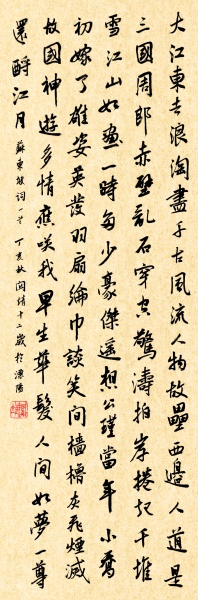 大江東去浪淘盡千古風流人物故壘西邊人道是
三國周郎赤壁亂石穿空驚濤拍岸捲起千堆
雪江山如畫一時多少豪傑遙想公瑾當年小喬
初嫁了雄姿英發羽扇綸巾談笑間檣櫓灰飛煙滅
故國神遊多情應笑我早生華髮人間如夢一尊
還酹江月 蘇東坡詞一首 丁亥秋 闵倩十二歲於溧陽